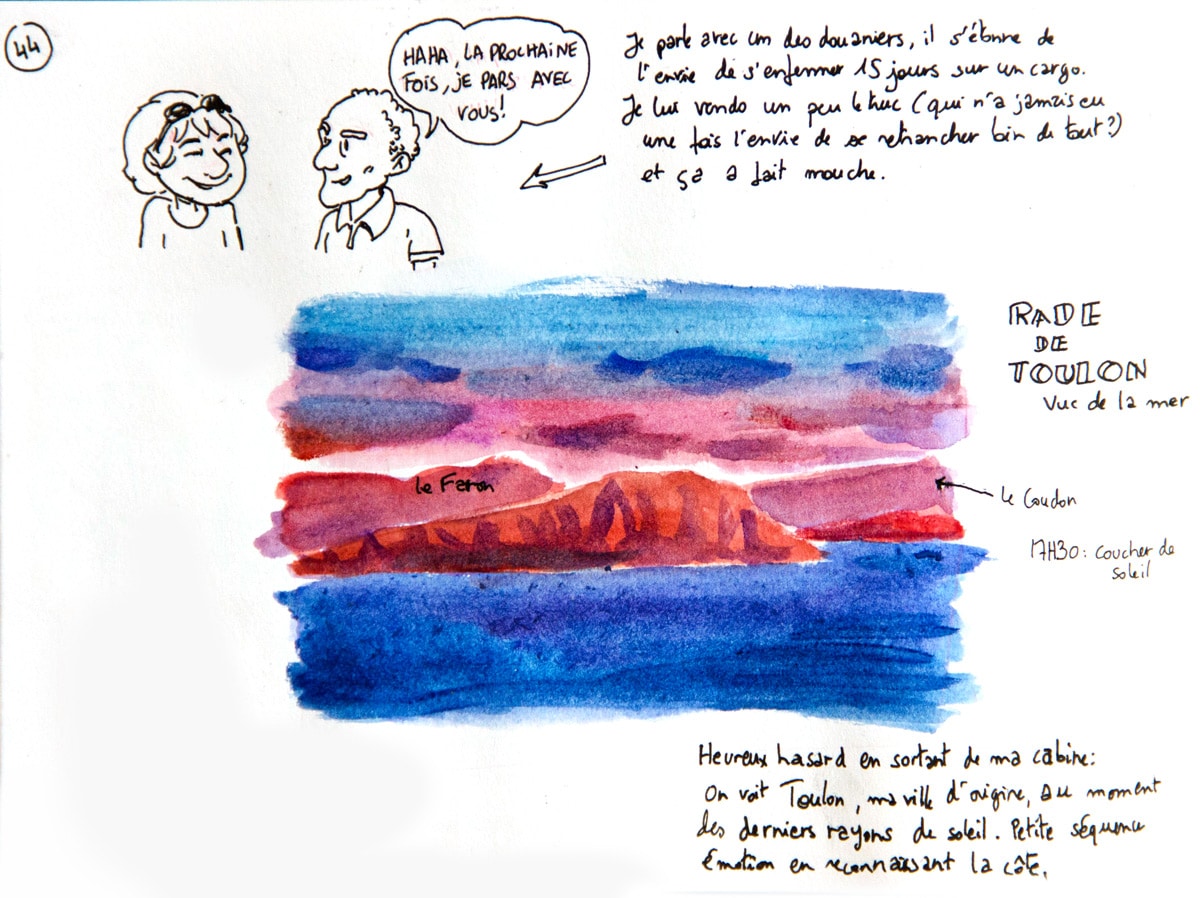 44
HAHA, LA PROCHAINE
FOIS, JE PARS AVEC
VOUS!
Je parle avec un des douaniers, il s'étonne de
l'envie de s'enfermer 15 jours sur un cargo.
Je lui vends un peu le truc (qui n'a jamais eu
une fois l'envie de se retrancher loin de tout?)
et ça a fait mouche.
RADE
DE
TOULON
Vue de la mer
le Faron
le Coudon
17H30: coucher de
soleil
Heureux hasard en sortant de ma cabine:
On voit Toulon, ma ville d'origine, au moment
des derniers rayons de soleil. Petite séquence
émotion en reconnaissant la côte.